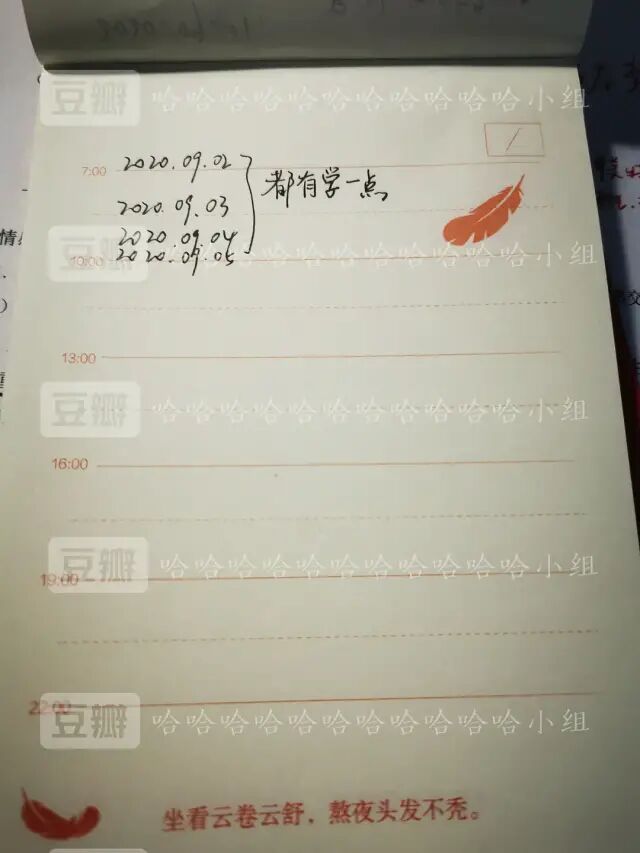 豆瓣 哈哈哈哈哈哈哈哈哈哈哈小组
7:00 2020.09.02
都有学一点
2020.09.03
2020.09.04
豆瓣 哈哈哈哈哈哈哈哈哈哈哈小组
10:00 2020.09.05
13:00
豆瓣 哈哈哈哈哈哈哈哈哈哈哈小组
16:00
豆瓣 哈哈哈哈哈哈哈哈哈哈哈小组
19:00
22:00
豆瓣 哈哈哈哈哈哈哈哈哈哈哈小组
坐看云卷云舒，熬夜头发不秃。